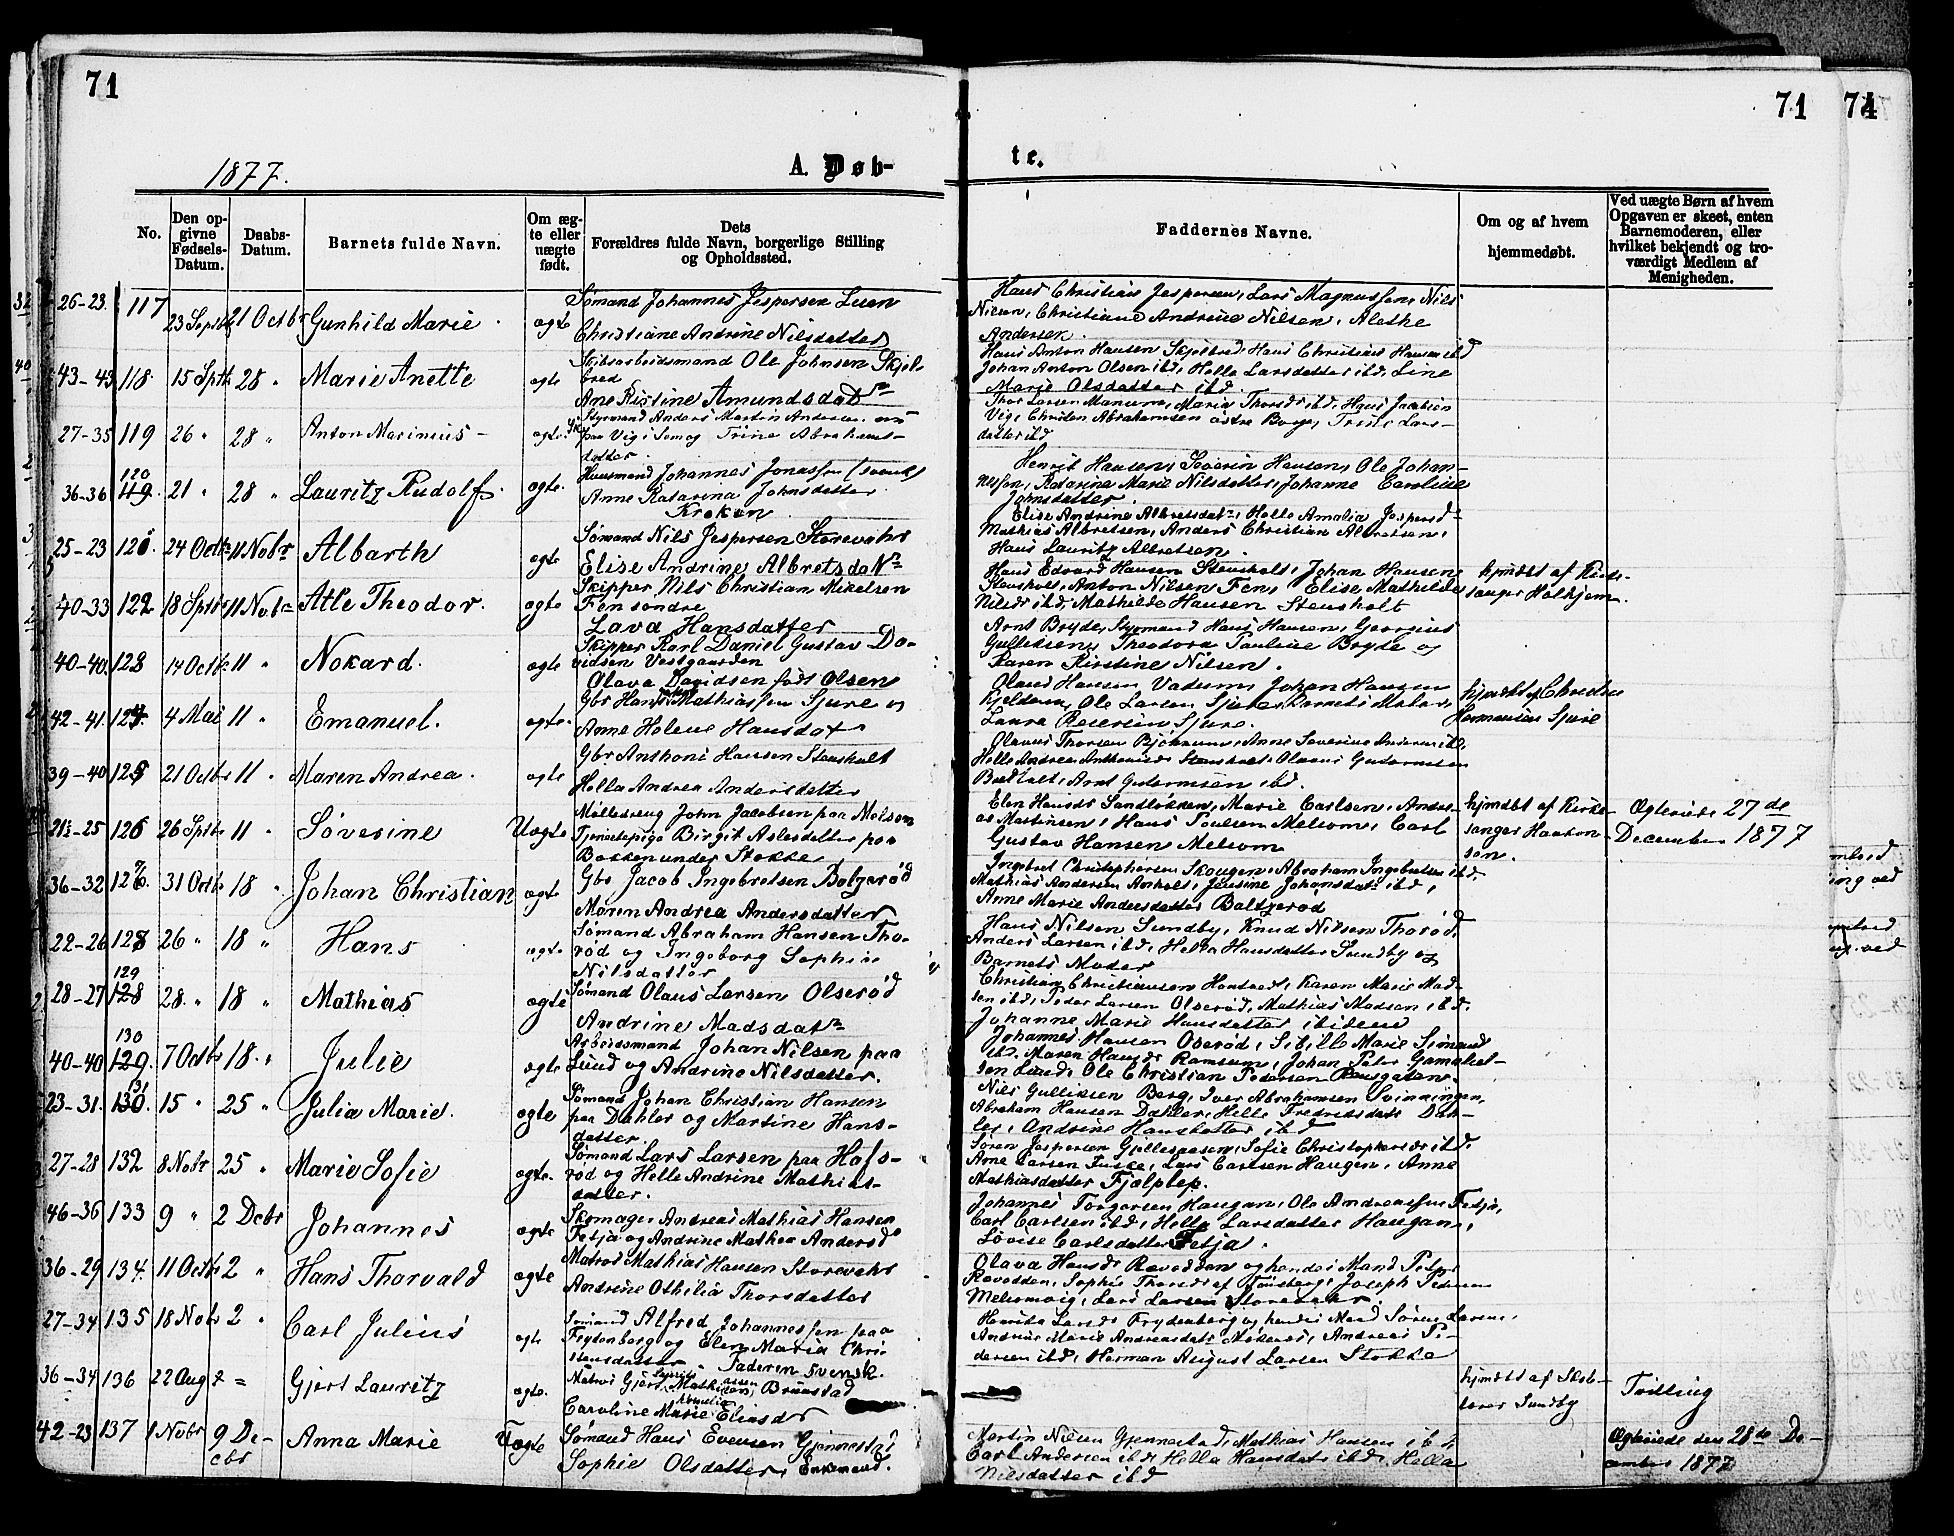 71
71
74
1877.
A. Døb-
te.
No.
Den op-
givne
Fødsels-
Datum.
Daabs-
Datum.
Barnets fulde Navn.
Om æg-
te eller
uægte
født.
Dets
Forældres fulde Navn, borgerlige Stilling
og Opholdssted.
Faddernes Navne.
Om og af hvem
hjemmedøbt.
Ved uægte Børn af hvem
Opgaven er skeet, enten
Barnemoderen, eller
hvilket bekjendt og tro-
værdigt Medlem af
Menigheden.
26-23. 117 23 Septbr 21 Octbr Gunhild Marie ægte
Sømand Johannes Jespersen
Christiane Andrine Nilsdatter
Hans Christian Jespersen, Lars Magnussen, Nils
Nilsen, Christiane Andrine Nilsen, Alethe
Andersen.
43-43 118 15 Sptb 28 " Marie Anette ægte
Skibsarbeidsmand Ole Johnsen Skjel-
bred
Ane Kistine Amundsdat
Hans Anton Hansen Skjelbred, Hans Christian Hansen ibd
Johan Anton Olsen ibd, Helle Larsdatter ibd, Line
Marie Olsdatter ibd.
27-35 119 26 " 28 " Anton Marinius ægte
Styrmand Anders Martin Andersen
paa Vig i Sem og Trine Abrahams-
datter.
Thor Larsen Manum, Maria Thorsdr ibd, Hans Jacobsen
Vig, Christen Abrahamsen østre Borge, Trine Lars-
datter ibd
36-36 120 21 " 28 " Lauritz Rudolf ægte.
Huusmand Johannes Jonassen (svensk)
Anne Katarina Johnsdatter
Kroken
Henrik Hansen, Severin Hansen, Ole Johan-
nessen, Katarina Marie Nilsdatter, Johanne Caroline
Johnsdatter.
25-23 121. 24 Octb 11 Nobr. Albarth ægte
Sømand Nils Jespersen Storevahr
Elise Andrine Albretsdatr
Elise Andrine Albretsdatr, Helle Amalia Jespersdr
Mathias Albretsen, Anders Christian Albretsen,
Hans Lauritz Albretsen.
40-33 122 18 Sptbr 11 Nobr Atle Theodor. ægte
Skipper Nils Christian Mikelsen
Fen søndre
Lava Hansdatter
Hans Edvard Hansen Stensholt, Johan Hansen
Stensholt, Anton Nilsen Fen, Elise Mathilde
Nilsdr ibd, Mathilde Hansen Stensholt
hjmdbt af Kirke-
sanger Holthjem.
40-40. 123 14 Octb 11 " Nokard. ægte
Skipper Karl Daniel Gustav Da-
vidsen Vestgaarden
Olava Davidsen født Olsen
Arnt Bryde, Styrmand Hans Hansen, Georgius
Gulliksen, Theodora Pauline Bryde og
Karen Kirstine Nilsen.
42-41. 124. 4 Mai 11 " Emanuel. ægte.
Gbr Hans Mathiassen Sjure og
Anne Helene Hansdat
Olaus Hansen Vadum, Johan Hansen
Kjeldern, Ole Larsen Sjure, Barnets Moder,
Laura Reiersen Sjure.
hjmdbt af Christen
Hermansen Sjure
39-40 125 21 Octbr 11 " Maren Andrea. ægte
Gbr Anthoni Hansen Stensholt
Hella Andrea Andersdatter
Olavus Thorsen Bjørnum, Anne Severine Andersen ibd,
Helle Andrea Anthonisdr Stensholt, Olaus Guttormsen
Arnt Guttormsen ibd.
21½-25 126 26 Sptbr 11 " Søverine Uægte
Mølledreng John Jacobsen paa Melsom
Tjenestepige Birgit Aslesdatter paa
Bakken under Stokke
Elen Hansdr Sandløkken, Marie Carlsen, Andre-
as Martinsen, Hans Poulsen Melsom, Carl
Gustav Hansen Melsom
hjmdbt af Kirke-
sanger Haakon-
sen.
Ægteviede 27de
December 1877
36-32 127. 31 Octb 18 " Johan Christian ægte
Gbr Jacob Ingebretsen Bolzerød
Maren Andrea Andersdatter
Ingebret Christophersen Skougen, Abraham Ingebretsen ibd.
Mathias Andersen Anholt, Jensine Johansdatr ibd,
Anne Marie Andersdatter Baltzerød
22-26 128 26 " 18 " Hans ægte
Sømand Abraham Hansen Tho-
rød og Ingeborg Sophie
Nilsdatter
Hans Nilsen Sundby, Knud Nilsen Thorød,
Anders Larsen ibd, Helle Hansdatter Sundby og
Barnets Moder
28-27 129 28. " 18 " Mathias ægte
Sømand Olaus Larsen Olserød
Andrine Madsdatr
Christian Christiansen Honerød, Karen Marie Mad-
sen ibd, Peder Larsen Olserød, Mathias Madsen ibd.
Johanne Marie Hansdatter ibidem
40-40 130 7 Octbr 18. " Julie ægte
Arbeidsmand Johan Nilsen paa
Lund og Andrine Nilsdatter.
Johannes Hansen Oserød, Sibille Marie Simonsd
ibd. Maren Hansdr Ramsum, Johan Peter Gamaliel-
sen Lund, Ole Christian Pedersen Rensgaten.
23-31. 131 15 " 25 " Julia Marie. ægte
Sømand Johan Christian Hansen
paa Dahler og Martine Hans-
datter.
Nils Gulliksen Berg, Iver Abrahamsen Svinningen,
Abraham Hansen Dahler, Helle Fredriksdatr Dah-
ler, Andrine Hansdatter ibd
27-28 132 8 Nobr 25 " Marie Sofie ægte.
Sømand Lars Larsen paa Hofs-
rød og Helle Andrine Mathias-
datter.
Søren Jespersen Gjellesaasen, Sofie Christophersdr ibd.
Arne Larsen Fuske, Lars Carlsen Haugen, Anne
Mathiasdatter Fjælplep.
46-36 133 9 " 2 Decbr Johannes ægte
Skomager Andreas Mathias Hansen
Fetja og Andrine Mathea Andersdr
Johannes Torgersen Haugan, Ole Andreassen Fetja,
Carl Carlsen ibd, Hella Larsdatter Haugan,
Lovise Carlsdatter Fetja.
36-29 134 11 Octb 2 " Hans Thorvald ægte
Matros Mathias Hansen Storevahr
Andrine Othilia Thorsdatter
Olava Hansdr Rovodden og hendes Mand Peter
Rovodden, Sophie Thorsdr af Tønsberg, Joseph Pedersen
Melsomvig, Lars Larsen Storevahr.
27-34 135 18 Nobr 2 " Carl Julius ægte
Sømand Alfred Johannessen paa
Frydenberg og Elen Maria Chri-
stensdatter - Faderen svensk.
Henrika Larsdr Frydenberg og hendes Mand Søren Larsen,
Andrine Marie Andreasdatr Møllerød, Andreas Pe-
dersen ibd, Herman August Larsen Stokke
36-34 136 22 Aug 2 = Gjert Lauritz ægte.
Matros Gjert Lauritz Mathiassen Brunstad
Caroline Marie Kornelia Eliasdr
hjmdbt af Skole-
lærer Sundby
Tvilling
42-23 137 1 Nobr 9 De-
cbr Anna Marie Uægte
Sømand Hans Evensen Gjennestad
Sophie Olsdatter, Enkemand.
Martin Nilsen Gjennestad, Mathias Hansen ibd,
Carl Andersen ibd, Hella Hansdatr ibd, Hella
Nilsdatter ibd
Ægteviede den 28de De-
cember 1877